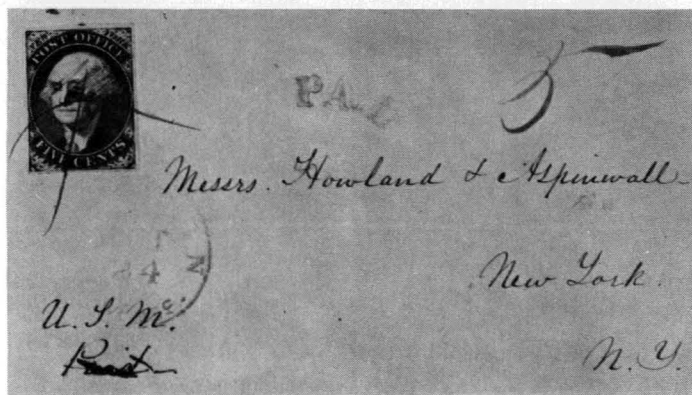 POST OFFICE
FIVE CENTS
PAID
5
Messrs. Howland & Aspinwall
New York.
24
N
U. S. M.
Paid
N. Y.